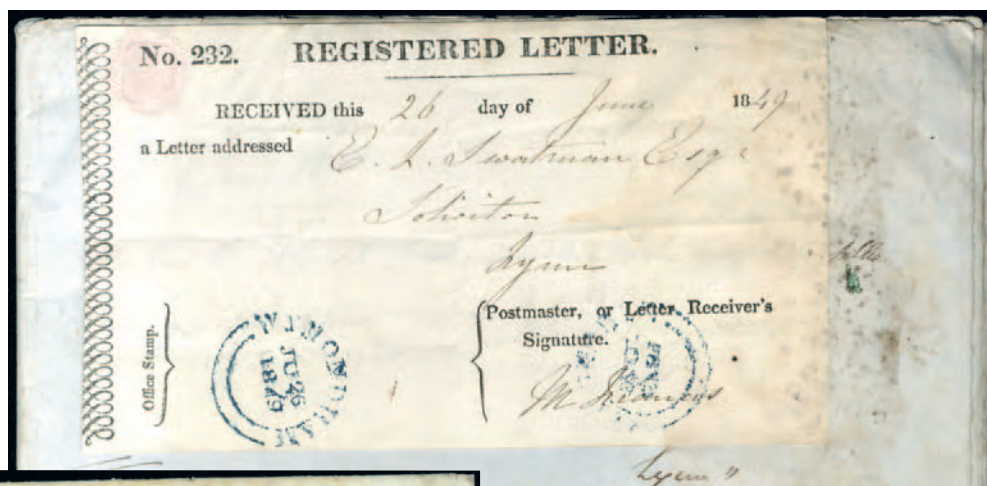 No. 232. REGISTERED LETTER.
RECEIVED this 26 day of June 1849
a Letter addressed
E. L. Swatman Esqr
Solicitor
Lynn
Office Stamp.
WYMONDHAM
JU 26
1849
Postmaster, or Letter Receiver's
Signature.
M
Lynn "